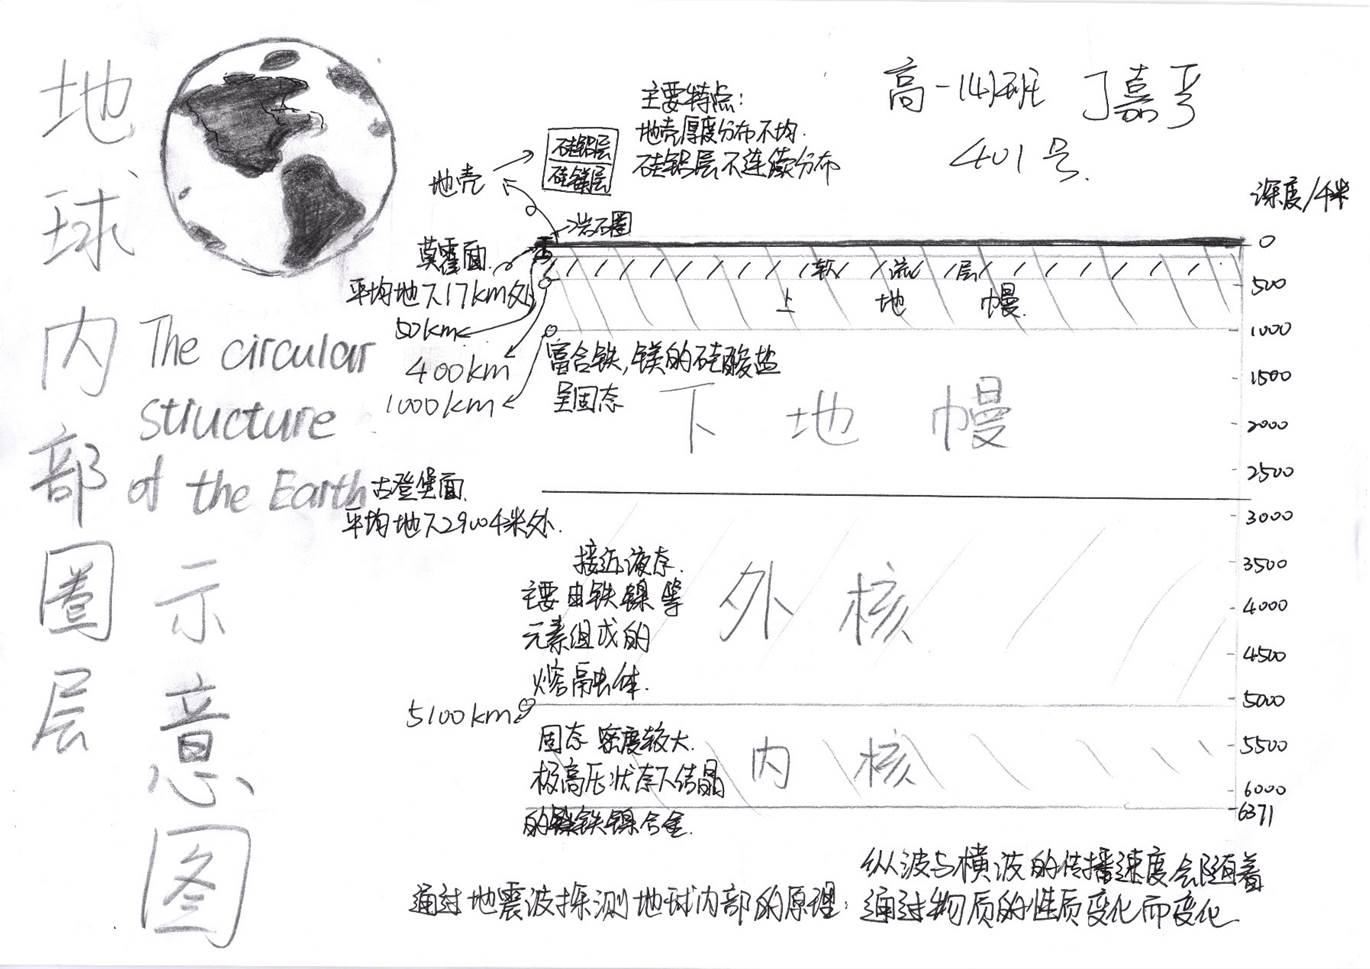 地球内部圈层
示意图
The circular
structure
of the Earth
高一14班 丁嘉
401号
主要特点:
地壳厚度分布不均.
硅铝层不连续分布
硅铝层
硅镁层
地壳
岩石圈
莫霍面
平均地下17km处
50km
400km
1000km
软流层
上地幔
富含铁,镁的硅酸盐
呈固态
下地幔
古登堡面
平均地下2900千米处.
接近液态.
主要由铁镍等
元素组成的
熔融体.
外核
5100km
固态 密度较大.
极高压状态下结晶
的铁镍合金.
内核
深度/千米
0
500
1000
1500
2000
2500
3000
3500
4000
4500
5000
5500
6000
6371
通过地震波探测地球内部的原理:
纵波与横波的传播速度会随着
通过物质的性质变化而变化